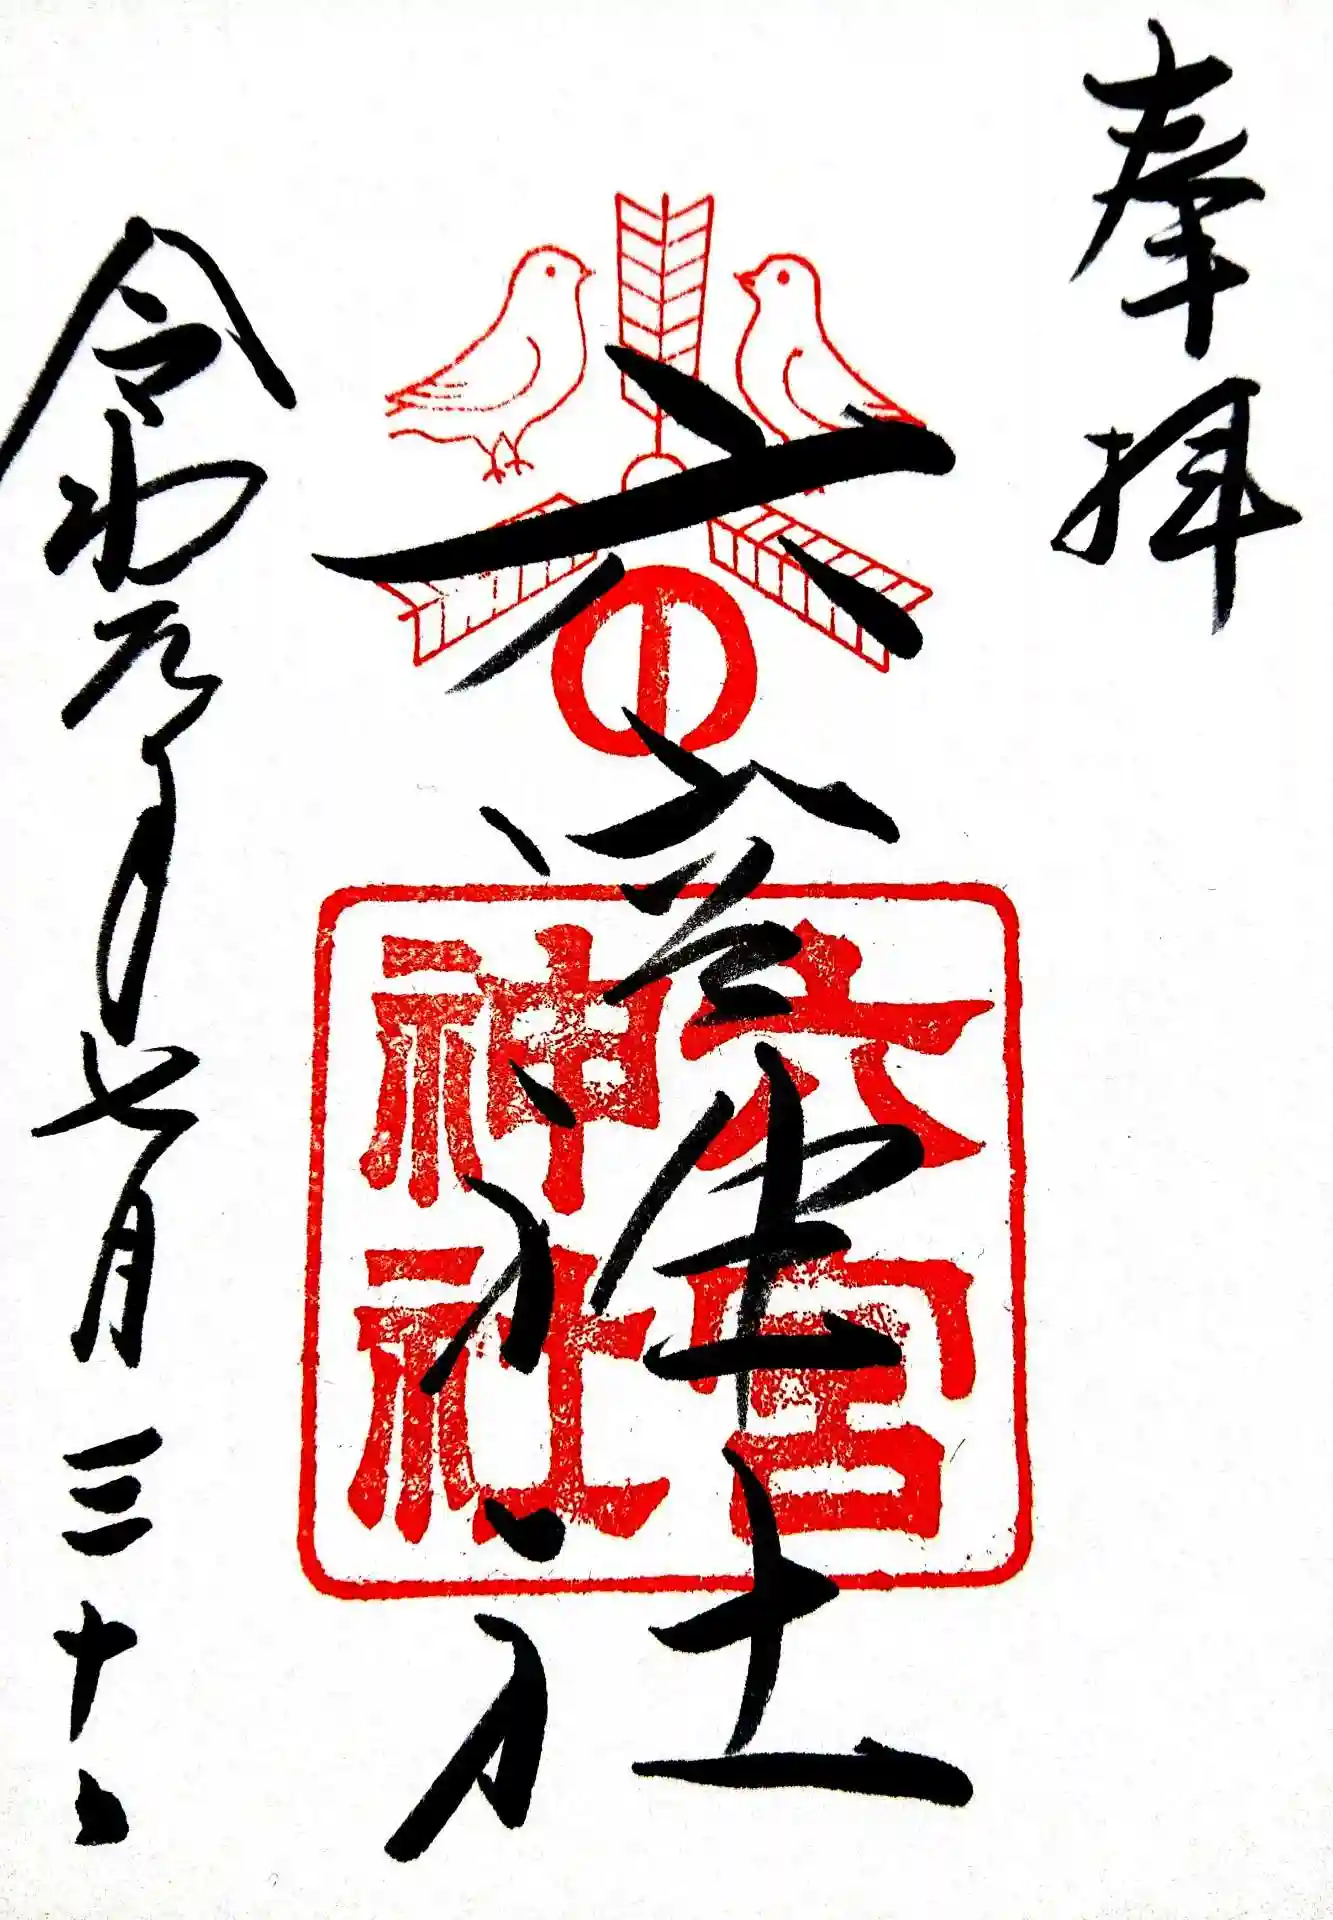 奉拝
六宮神社
の
六宮
神社
令和元年七月三十日